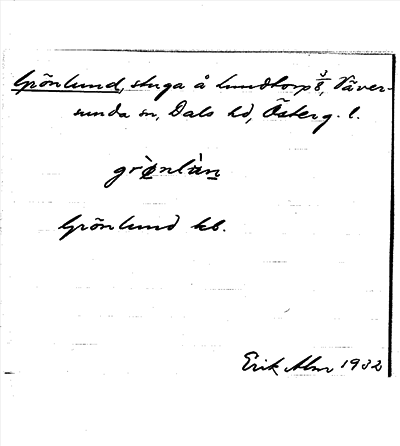 Grönlund, stuga å Lundtorp 3/8, Väver-
sunda sn, Dals hd, Österg. l.
grø̀nlùn
Grönlund kb.
Erik Alm 1932